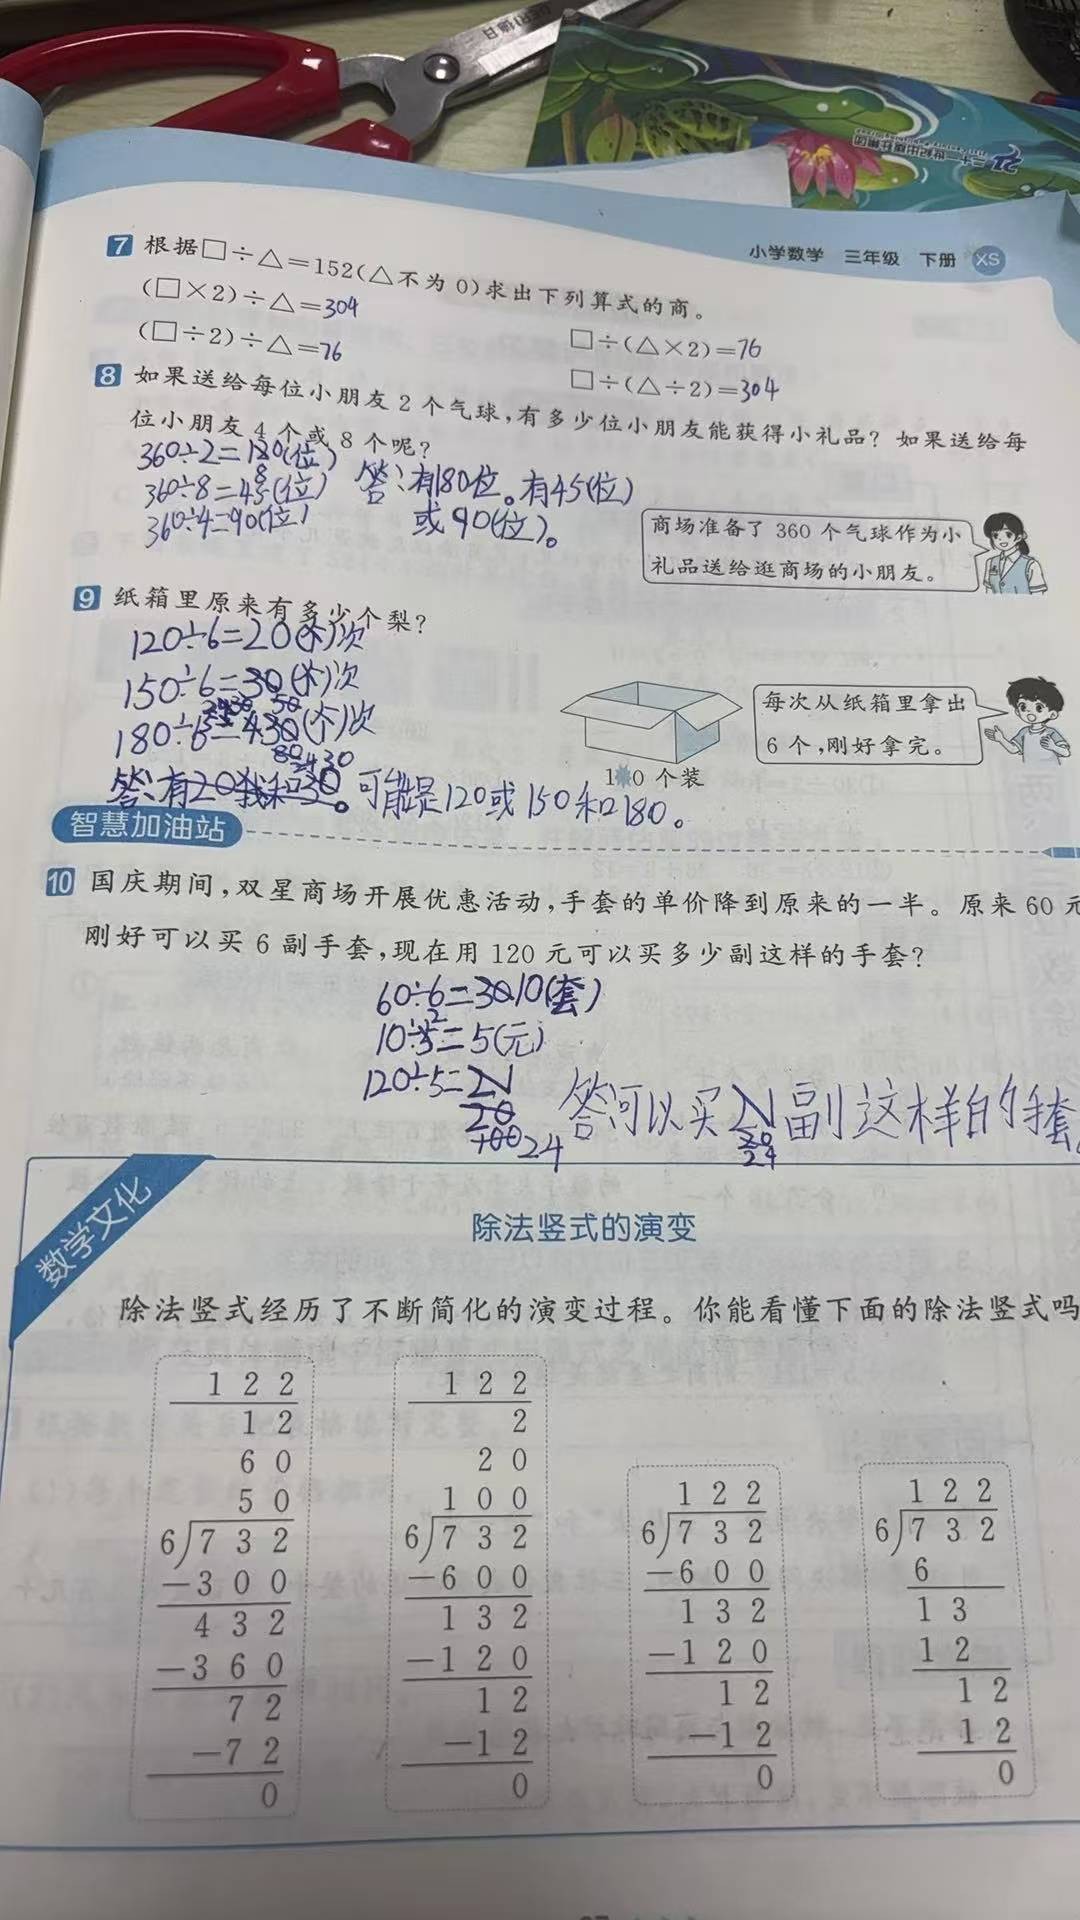 小学数学 三年级 下册 XS
7 根据□÷△=152(△不为0)求出下列算式的商。
(□×2)÷△=304
□÷(△×2)=76
(□÷2)÷△=76
□÷(△÷2)=304
8 如果送给每位小朋友2个气球,有多少位小朋友能获得小礼品?如果送给每
位小朋友4个或8个呢?
360÷2=180(位)
360÷8=45(位) 答:有180位。有45(位)
360÷4=90(位) 或90(位)。
商场准备了360个气球作为小
礼品送给逛商场的小朋友。
9 纸箱里原来有多少个梨?
120÷6=20(个)次
150÷6=30(个)次
180÷6=30(个)次
每次从纸箱里拿出
6个,刚好拿完。
1 0个装
答:有20我和30。可能是120或150和180。
智慧加油站
10 国庆期间,双星商场开展优惠活动,手套的单价降到原来的一半。原来60元
刚好可以买6副手套,现在用120元可以买多少副这样的手套?
60÷6=10(套)
10÷2=5(元)
120÷5=
24
答:可以买24副这样的手套
数学文化
除法竖式的演变
除法竖式经历了不断简化的演变过程。你能看懂下面的除法竖式吗
1 2 2
1 2
6 0
5 0
6 7 3 2
-3 0 0
4 3 2
-3 6 0
7 2
-7 2
0
1 2 2
2
2 0
1 0 0
6 7 3 2
-6 0 0
1 3 2
-1 2 0
1 2
-1 2
0
1 2 2
6 7 3 2
-6 0 0
1 3 2
-1 2 0
1 2
-1 2
0
1 2 2
6 7 3 2
6
1 3
1 2
1 2
1 2
0